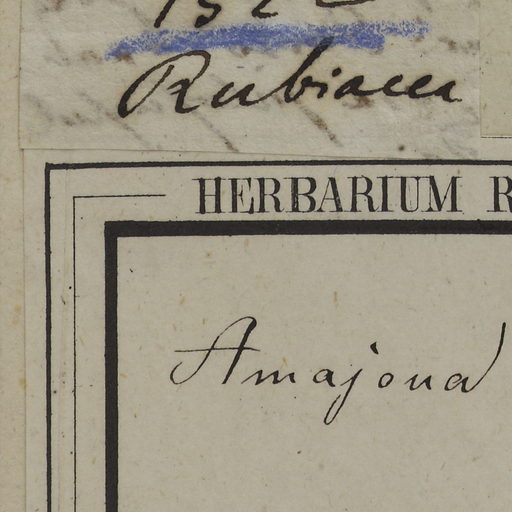 Rubiacea
HERBARIUM R
Amajoua